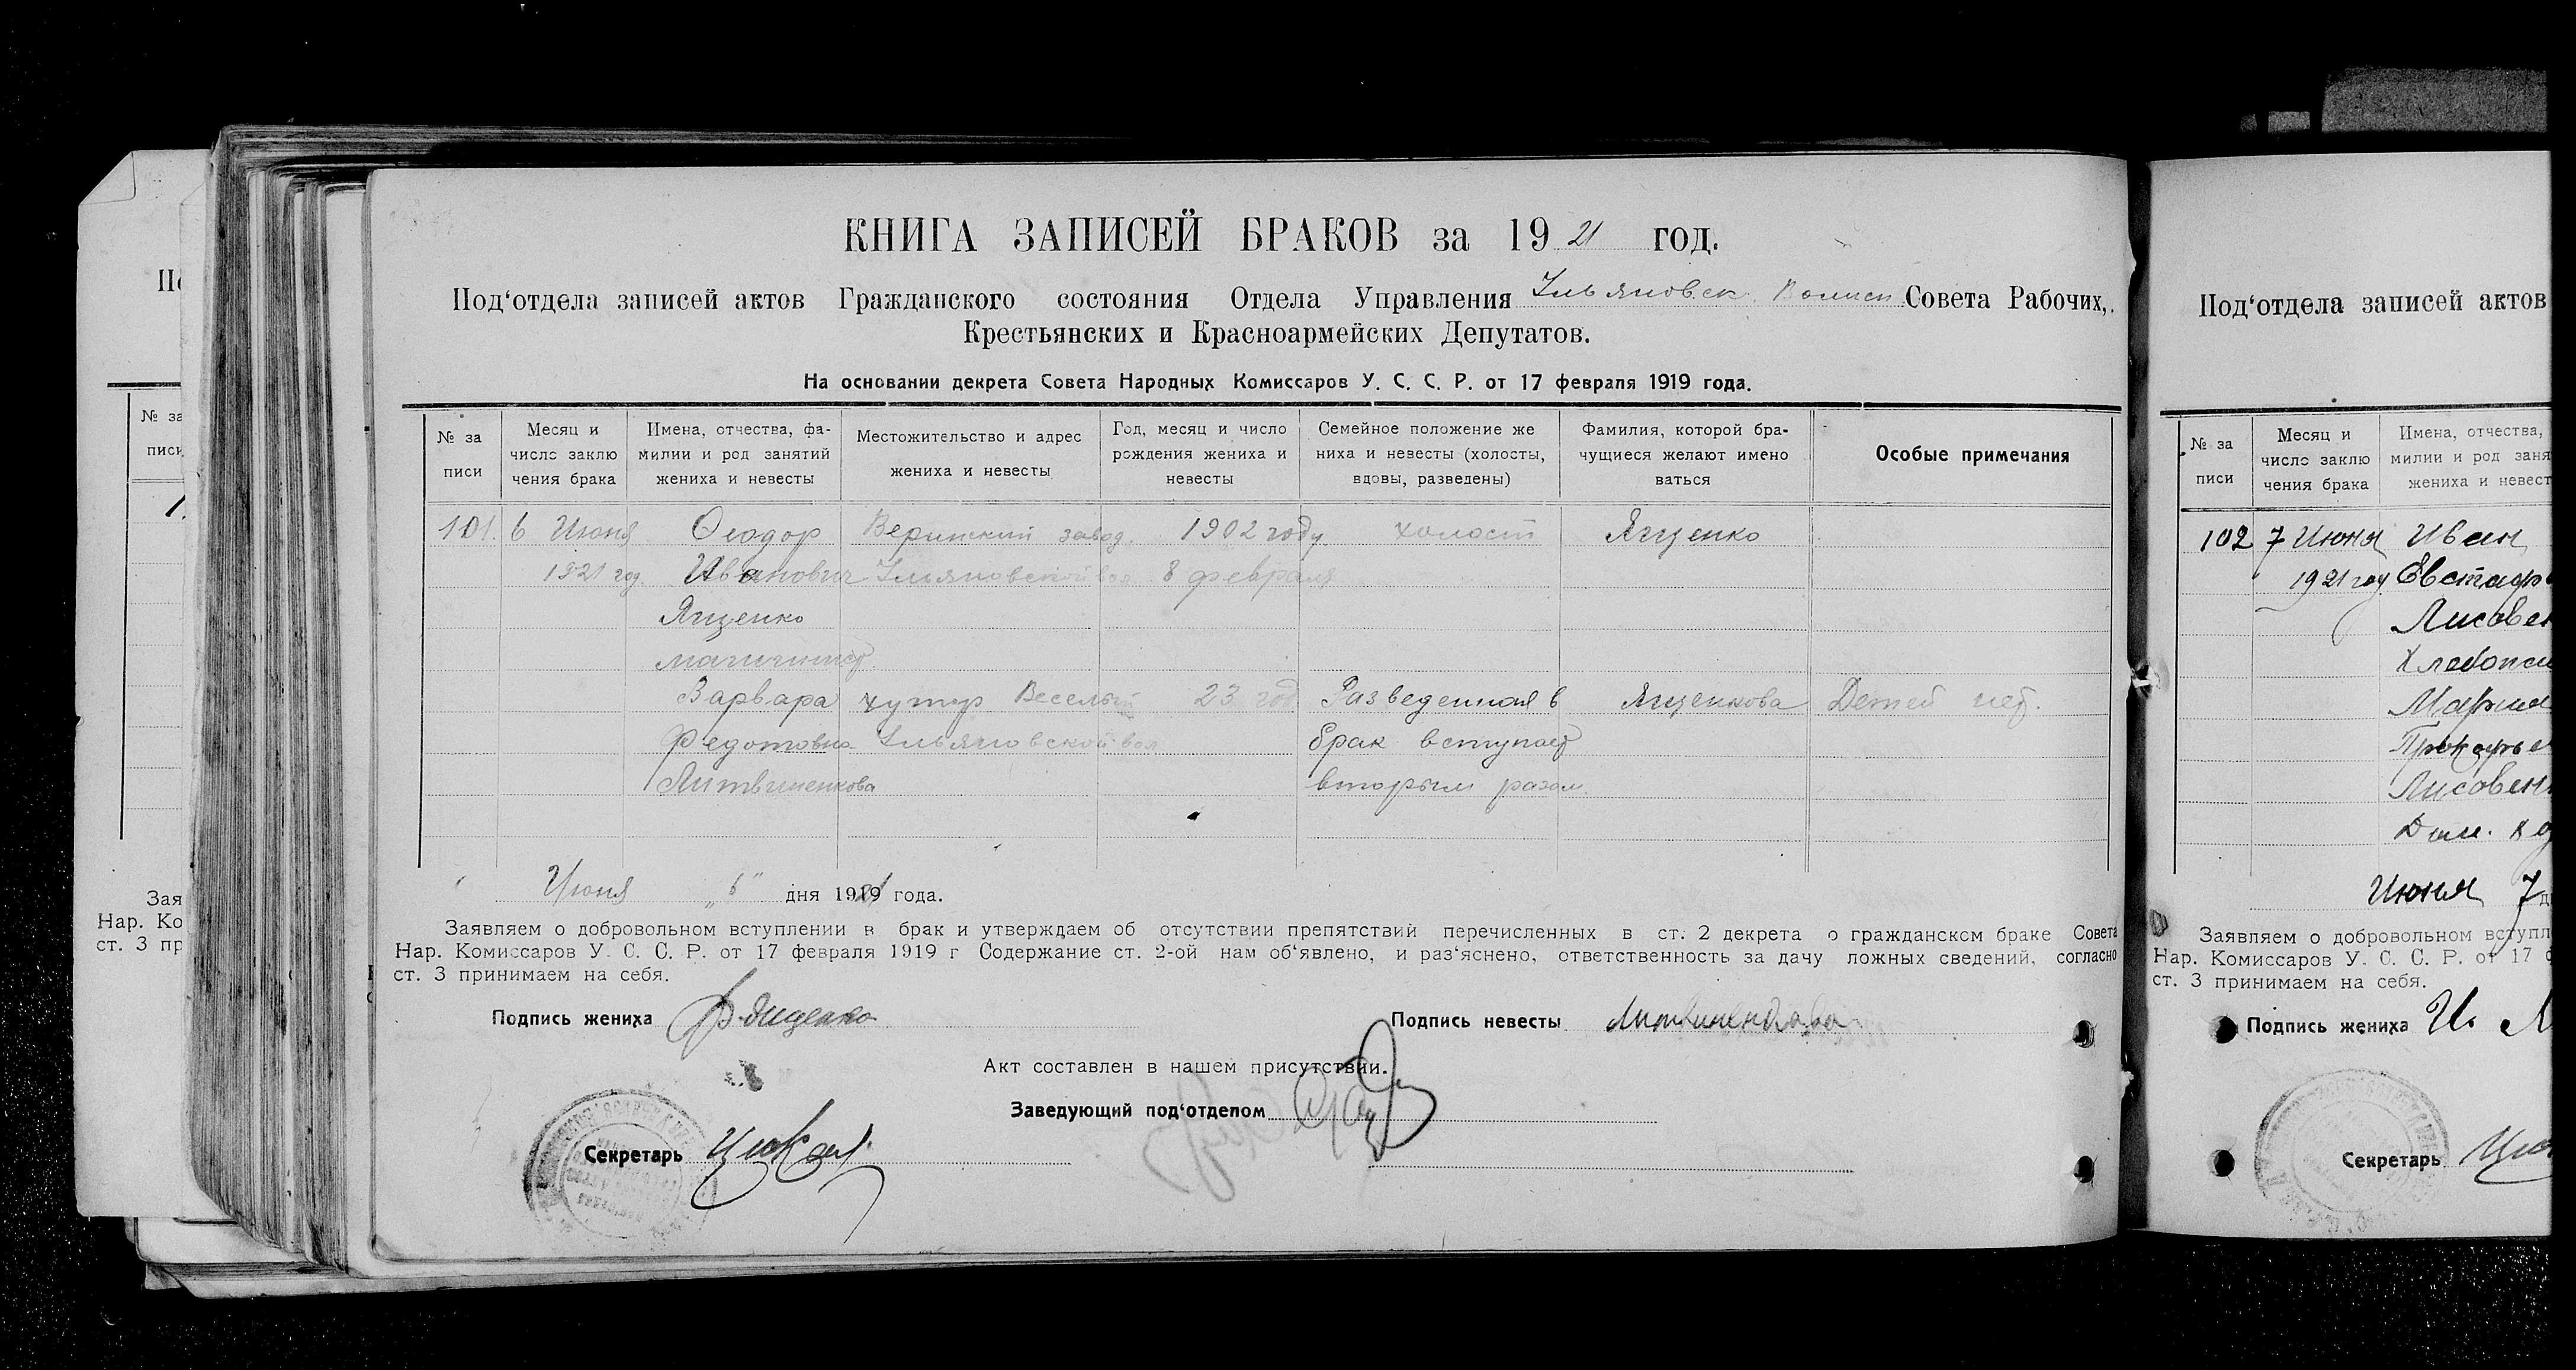 КНИГА ЗАПИСЕЙ БРАКОВ за 1921 год.
Под‘отдела записей актов Гражданского состояния Отдела Управления Ульяновск Волисп Совета Рабочих,
Крестьянских и Красноармейских Депутатов.
На основании декрета Совета Народных Комиссаров У. С. С. Р. от 17 февраля 1919 года.
№ за
писи
Месяц и
число заклю
чения брака
Имена, отчества, фа-
милии и род занятий
жениха и невесты
Местожительство и адрес
жениха и невесты
Год, месяц и число
рождения жениха и
невесты
Семейное положение же
ниха и невесты (холосты,
вдовы, разведены)
Фамилия, которой бра-
чущиеся желают имено
ваться
Особые примечания
101. 6 Июня Феодор Веринский завод. 1902 году холост Ященко
1921 год Иванович Ульяновской вол 8 февраля
Ященко
машинист
Варвара хутор Веселый 23 год Разведенная в Ященкова Детей нет.
Федотовна Ульяновской вол брак вступает
Литвиненкова вторым разом.
Июня „6" дня 1921 года.
Заявляем о добровольном вступлении в брак и утверждаем об отсутствии препятствий перечисленных в ст. 2 декрета о гражданском браке Совета
Нар. Комиссаров У. С. С. Р. от 17 февраля 1919 г Содержание ст. 2-ой нам об‘явлено, и раз‘яснено, ответственность за дачу ложных сведений, согласно
ст. 3 принимаем на себя.
Подпись жениха Ф. Ященко
Подпись невесты Литвиненкова
Акт составлен в нашем присутствии.
Заведующий под‘отделом
Секретарь
По
№ за
писи
Зая
Нар. Ко
ст. 3 пр
Под‘отдела записей актов
№ за
писи
Месяц и
число заклю
чения брака
Имена, отчества,
милии и род заня
жениха и невест
102 7 Июня Иван
1921 году Евстафь
Лисовен
Хлебопаш
Мария
Прокофье
Лисовен
Дом. хо
Июня 7 д
Заявляем о добровольном вступл
Нар. Комиссаров У. С. С. Р. от 17 ф
ст. 3 принимаем на себя.
Подпись жениха И. Л
Секретарь